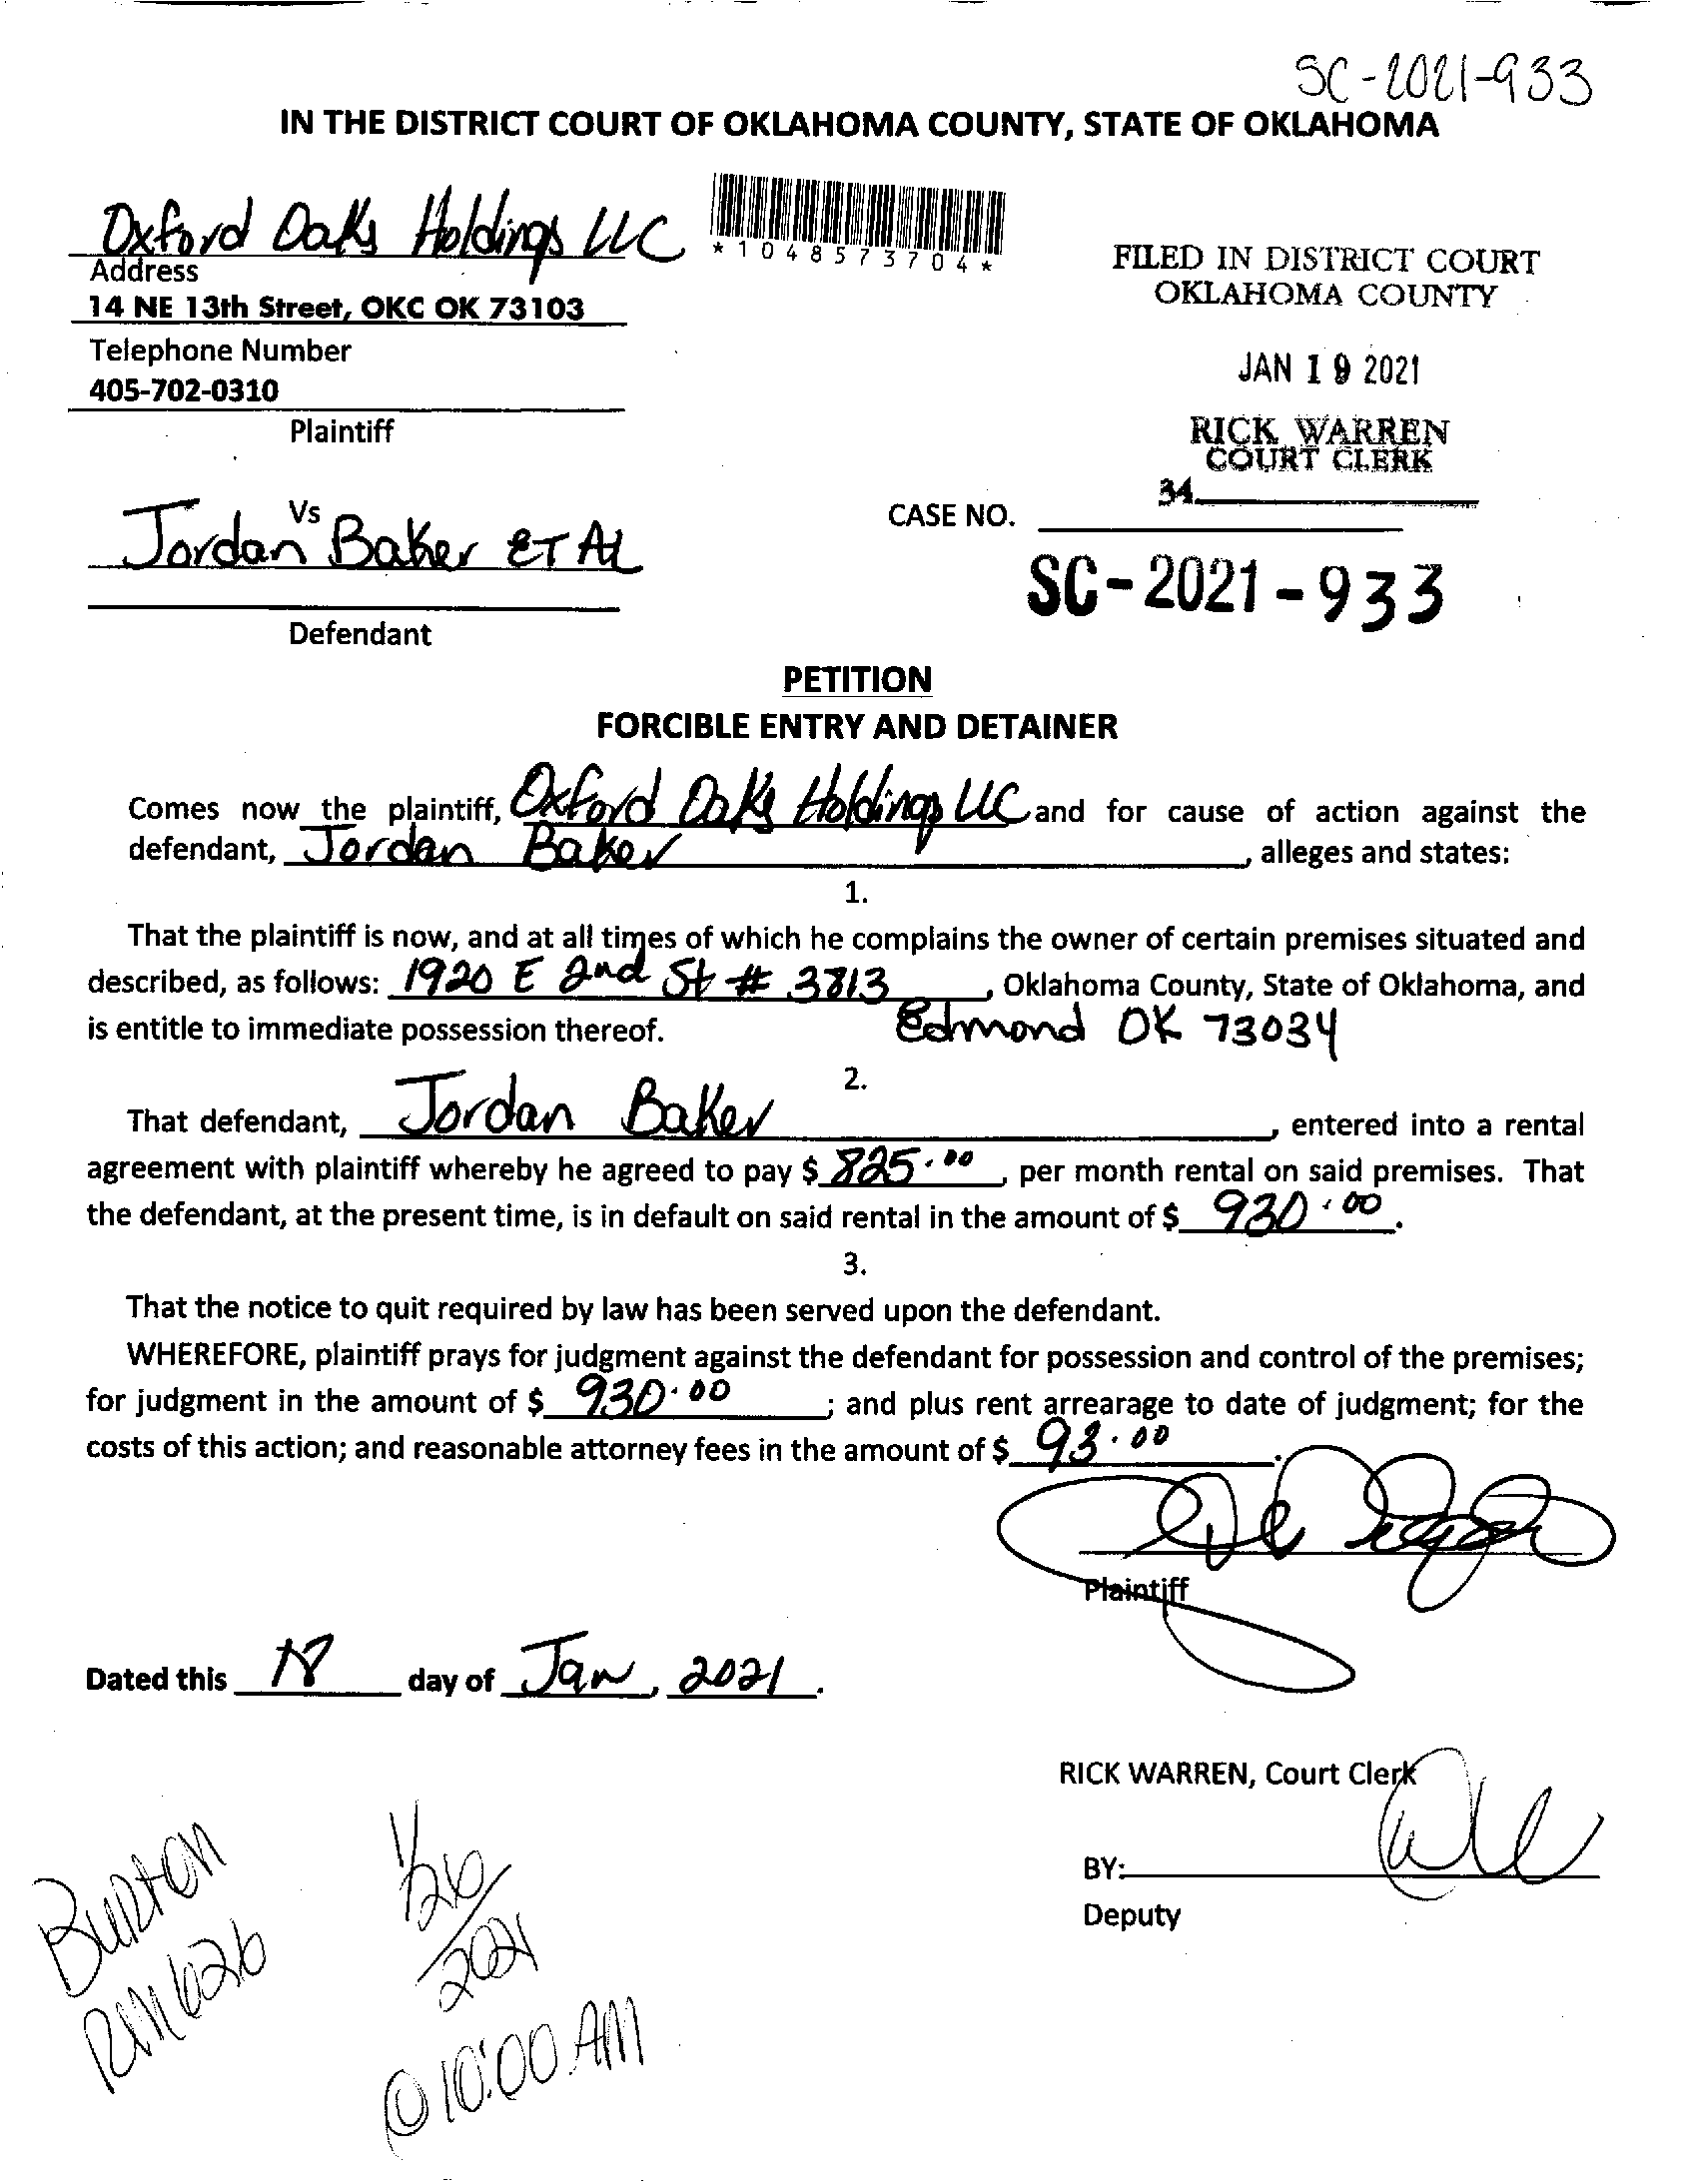 SC-2021-933
IN THE DISTRICT COURT OF OKLAHOMA COUNTY, STATE OF OKLAHOMA
Oxford Oaks Holdings LLC
*1048573704*
Address
14 NE 13th Street, OKC OK 73103
Telephone Number
405-702-0310
Plaintiff
FILED IN DISTRICT COURT
OKLAHOMA COUNTY
JAN 19 2021
RICK WARREN
COURT CLERK
34
Vs
Jordan Baker ET AL
Defendant
CASE NO.
SC-2021-933
PETITION
FORCIBLE ENTRY AND DETAINER
Comes now the plaintiff, Oxford Oaks Holdings LLC and for cause of action against the
defendant, Jordan Baker, alleges and states:
1.
That the plaintiff is now, and at all times of which he complains the owner of certain premises situated and
described, as follows: 1920 E 2nd St # 3813, Oklahoma County, State of Oklahoma, and
is entitle to immediate possession thereof. Edmond OK 73034
2.
That defendant, Jordan Baker, entered into a rental
agreement with plaintiff whereby he agreed to pay $ 825.00, per month rental on said premises. That
the defendant, at the present time, is in default on said rental in the amount of $ 930.00.
3.
That the notice to quit required by law has been served upon the defendant.
WHEREFORE, plaintiff prays for judgment against the defendant for possession and control of the premises;
for judgment in the amount of $ 930.00; and plus rent arrearage to date of judgment; for the
costs of this action; and reasonable attorney fees in the amount of $ 93.00.
Plaintiff
Dated this day of Jan, 2021.
RICK WARREN, Court Clerk
BY:
Deputy
Burton
RM 626
1/26/2021
@ 10:00 AM